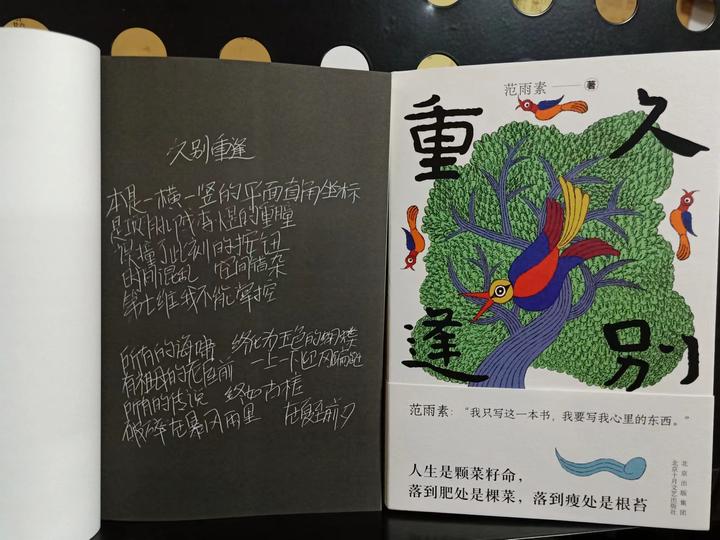 久别重逢
本是一横一竖的平面直角坐标
是 的重瞳
撞了此刻的按钮
时间混乱 空间错杂
我不能掌控
所有的 终化为五色的蝴蝶
有祖母的花园前 一上一下迎风蹁跹
所有的传说 终如
破碎在暴风雨里 在夏至前夕
范雨素——著
久别
重逢
范雨素：“我只写这一本书，我要写我心里的东西。”
人生是颗菜籽命，
落到肥处是棵菜，落到瘦处是根苔
北京出版集团
北京十月文艺出版社